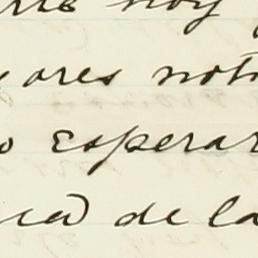 hoy
ores not
esperar
ca de la